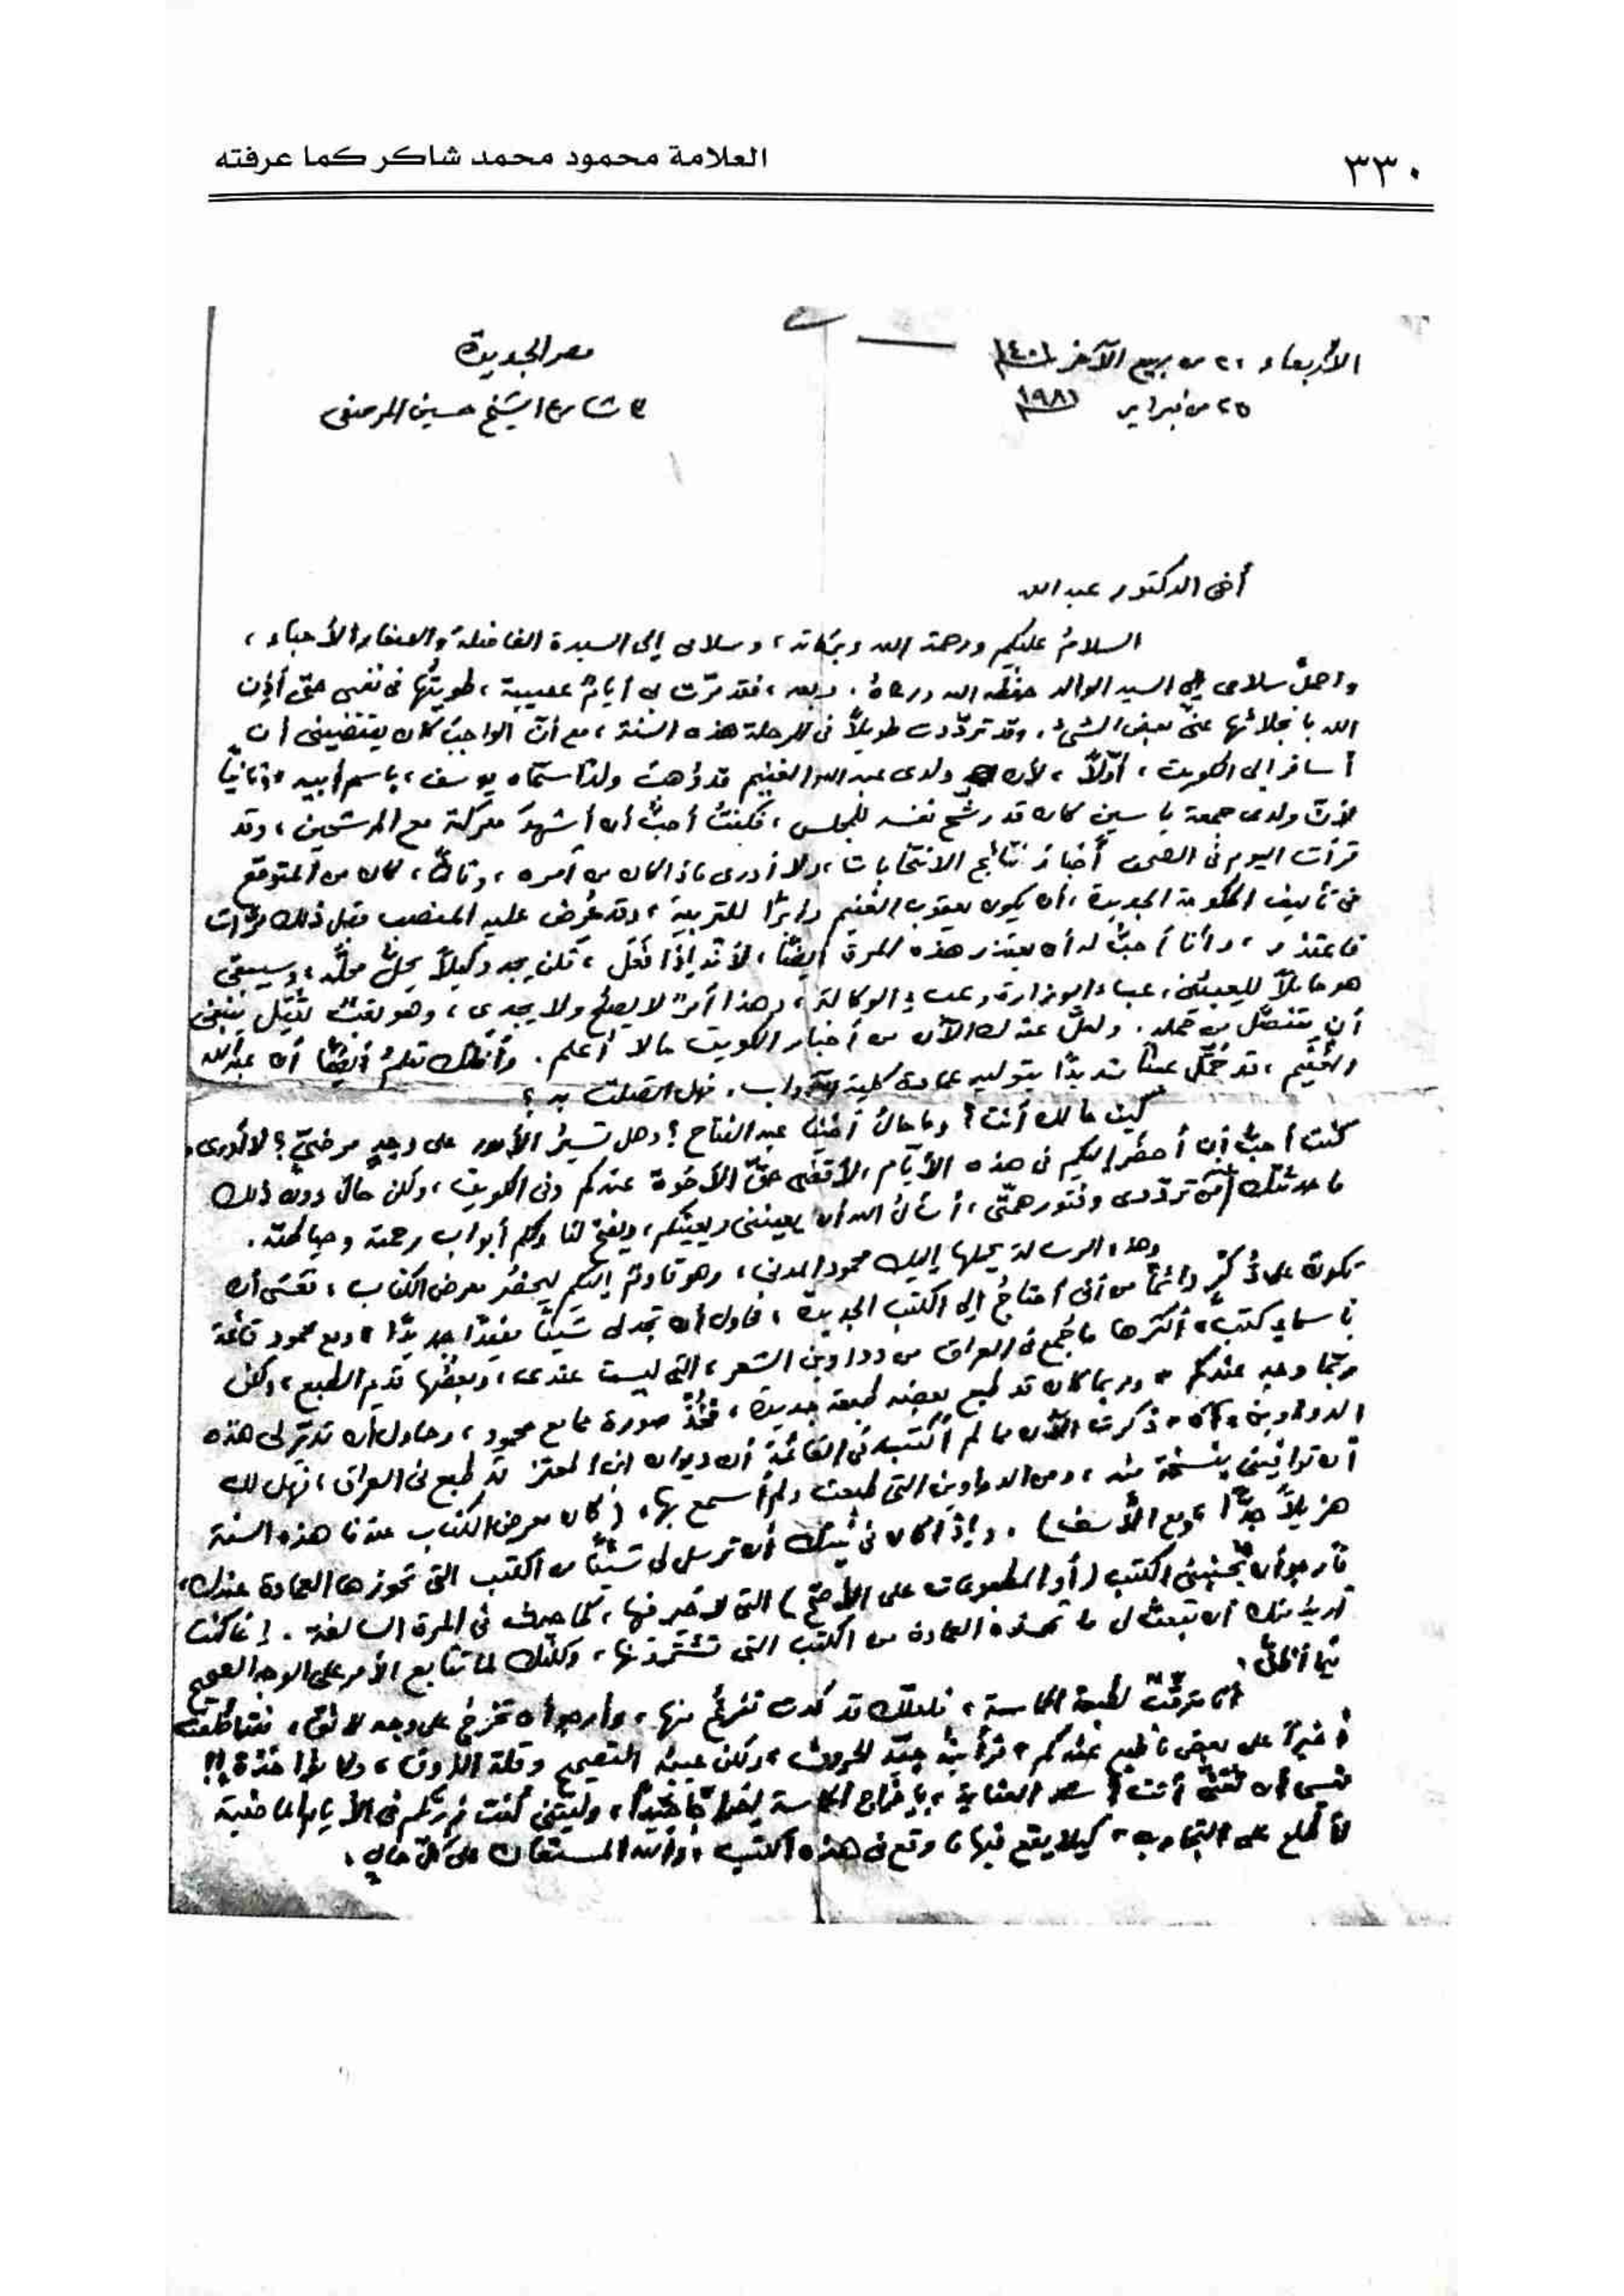 ٣٣٠
العلامة محمود محمد شاكر كما عرفته
الأربعاء ٢٠ من ربيع الآخر ١٤٠١
٢٥ من فبراير ١٩٨١
مصر الجديدة
٣ شارع الشيخ حسين المرصفى
أخى الدكتور عبد الله
السلام عليكم ورحمة الله وبركاته، وسلامى إلى السيدة الفاضلة والصغار الأحباء،
واحمل سلامى إلى السيد الوالد حفظه الله ورعاه. وبعد، فقد مرّت بى أيامٌ عصيبة، طويتُها فى نفسى حتى أذِن
الله بانجلائها عنى بعض الشىء. وقد تردّدت طويلاً فى الرحلة هذه السنة، مع أنّ الواجبَ كان يقتضينى أن
أسافر إلى الكويت، أوّلاً، لأن ولدى عبد الله الغنيم قد رُهبَ ولدًا سمّاه يوسف، باسم أبيه، وثانياً
لأنّ ولدى جمعة ياسين كان قد رشّح نفسه للمجلس، فكنتُ أحبُّ أن أشهدَ معركته مع المرشحين، وقد
قرأت اليوم فى الصحف أخبار نتائج الانتخابات، ولا أدرى ماذا كان من أمره، وثالثاً، كان من المتوقع
فى تأليف الحكومة الجديدة، أن يكون يعقوب الغنيم وزيرًا للتربية، وقد عُرض عليه المنصب قبل ذلك مرّات
فاعتذر، وأنا أحبُّ له أن يعتذر هذه المرة أيضًا، لأنّه إذا فَعَل، فلن يجد وكيلاً يحلُّ محلّه، وسيبقى
هو حاملاً للعبئين، عبء الوزارة وعبء الوكالة، وهذا أمرٌ لا يصلح ولا يجدى، وهو لقبٌ ثقيل ينبغى
أن يتنصّل من حمله. ولعلّ عندك الآن من أخبار الكويت مالا أعلم. وأظنك تعلمُ أيضًا أن عبد الله
الغنيم، قد حُمِّل عبئاً شديدًا بتوليه عمادة كلية الآداب. فهل اتصلت به؟
كيف حالك أنت؟ وما حالُ أخينا عبد الفتاح؟ وهل تسيرُ الأمور على وجهٍ مرضىّ؟ لا أدرى.
كنت أحبُّ أن أحضُر إليكم فى هذه الأيام، لأقضى حقّ الأخوة عندكم وفى الكويت، ولكن حال دون ذلك
ما حدثتك عن تردّدى وفتور همّتى، أسأل الله أن يعيننى ويعينكم، ويفتح لنا ولكم أبواب رحمة وصيانته.
وهذه الرسالة يحملها إليك محمود المدنى، وهو قادمٌ إليكم ليحضُر معرض الكتاب، فعسَى أن
تكون على ذُكْرٍ دائمًا من أنى أحتاجُ إلى الكتب الجديدة، فحاول أن تجد لى شيئًا مفيدًا جديدًا، ومع محمود قائمة
بأسماء كتب، أكثرها ما طُبع فى العراق من دواوين الشعر، التى ليست عندى، وبعضُها قديم الطبع، ولكن
ربّما وجد عندكم، وربما كان قد طبع بعضه طبعة جديدة، فخُذْ صورة مما مع محمود، وحاول أن تدبّر لى هذه
الدواوين، ذكرت الآن مما لم أكتبه فى القائمة أن ديوان ابن المعتز قد طبع فى العراق، فهل لك
أن توافينى بنسخة منه، ومن الدواوين التى طبعت ولم أسمع بها، (كان معرض الكتاب عندنا هذه السنة
هزيلاً جدًّا، ومع الأسف). وإذا كان فى نيّتك أن ترسل لى شيئًا من الكتب التى تحوزها العمادة عندك،
فأرجو أن تُجنّبنى الكتب (أو المطبوعات على الأصحّ) التى لا خير فيها، كما حدث فى المرة السالفة. إنما كنت
أريد منك أن تبعث لى ما تحوزه العمادة من الكتب التى تشترونها، ولكنّك لم تتابع الأمر على الوجه الصحيح
فيما أظنّ.
أنا مترقّبٌ لطبعة الحماسة، فلعلّك قد كدت تفرغُ منها، وأرجو أن تخرُجَ على وجه لائق، فقد اطّلعت
أخيراً على بعض ما طبع عندكم، فرأيتُه جيّد الحروف، ولكن عيبُه التصحيح وقلة الذوق، ولا مؤاخذة!!
فعسى أن تُعْنى أنت بإخراج الحماسة إخراجًا جيّداً، وليتنى كنت زرتكم فى الأيام الماضية
لأطّلع على التجارب، كيلا يقع فيها ما وقع فى هذه الكتب، والله المستعان على كلّ حال.